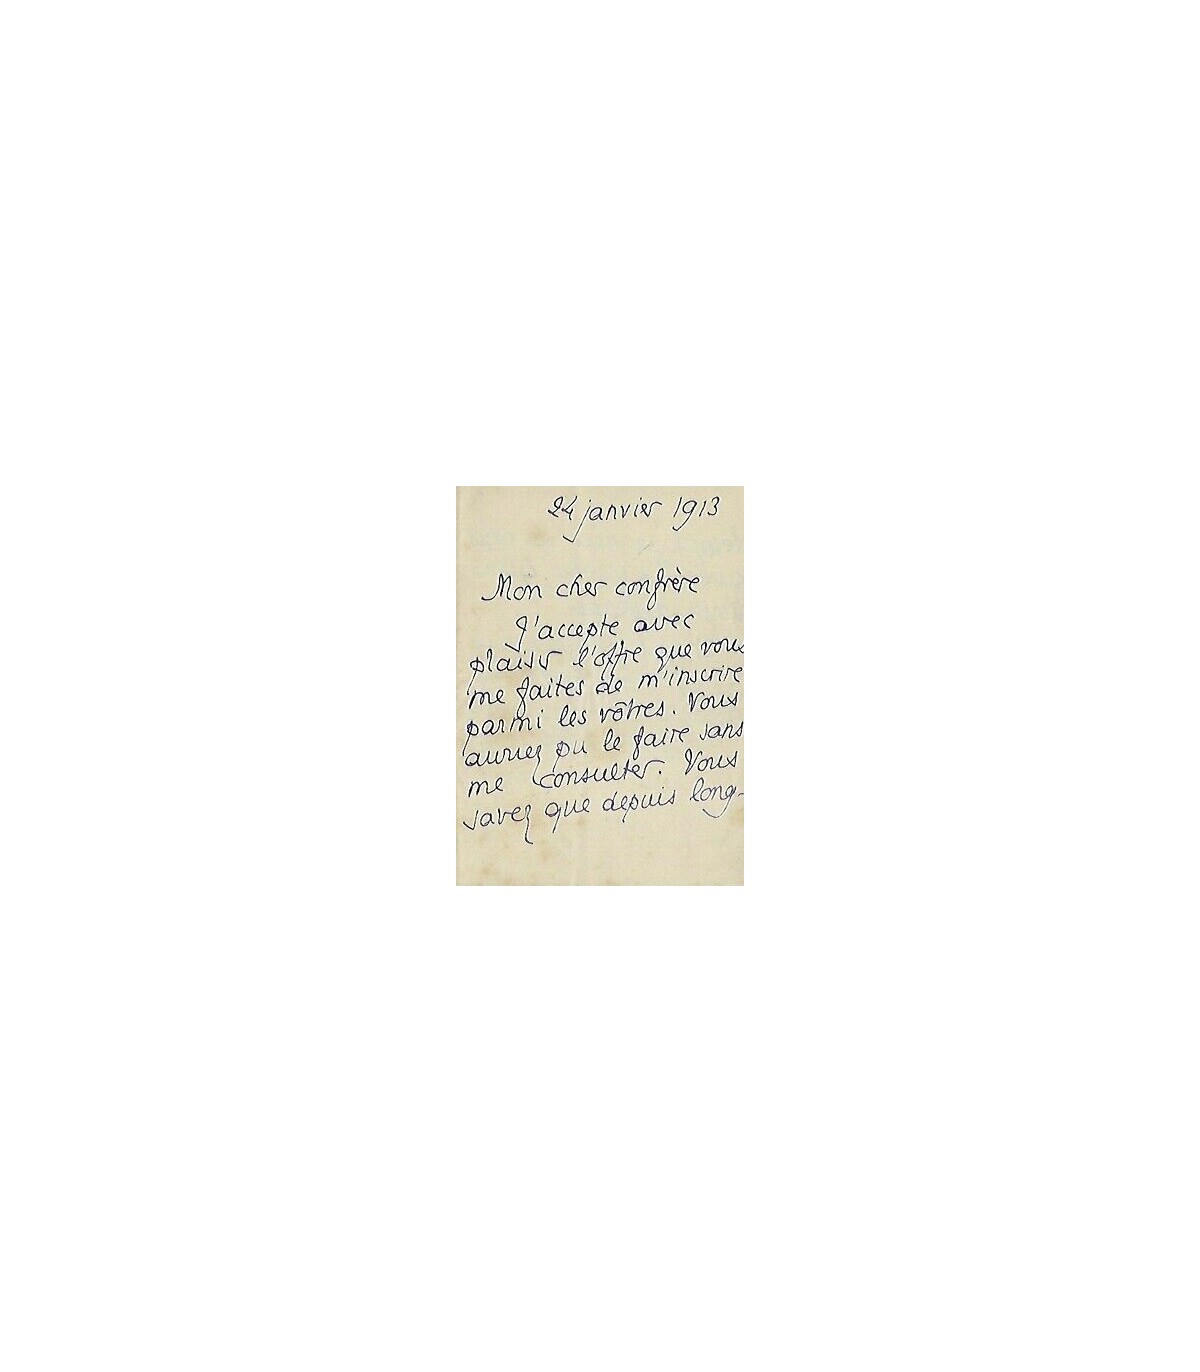 24 janvier 1913
Mon cher confrère
J'accepte avec
plaisir l'offre que vous
me faites de m'inscrire
parmi les vôtres. Vous
auriez pu le faire sans
me consulter. Vous
savez que depuis long-